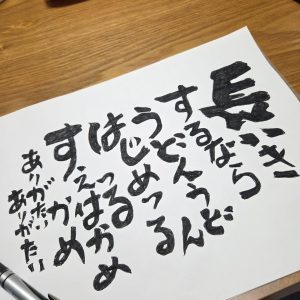 長いき
するなら
うどんうどん
はじめつるつる
すえはかめかめ
ありがたい
ありがたい